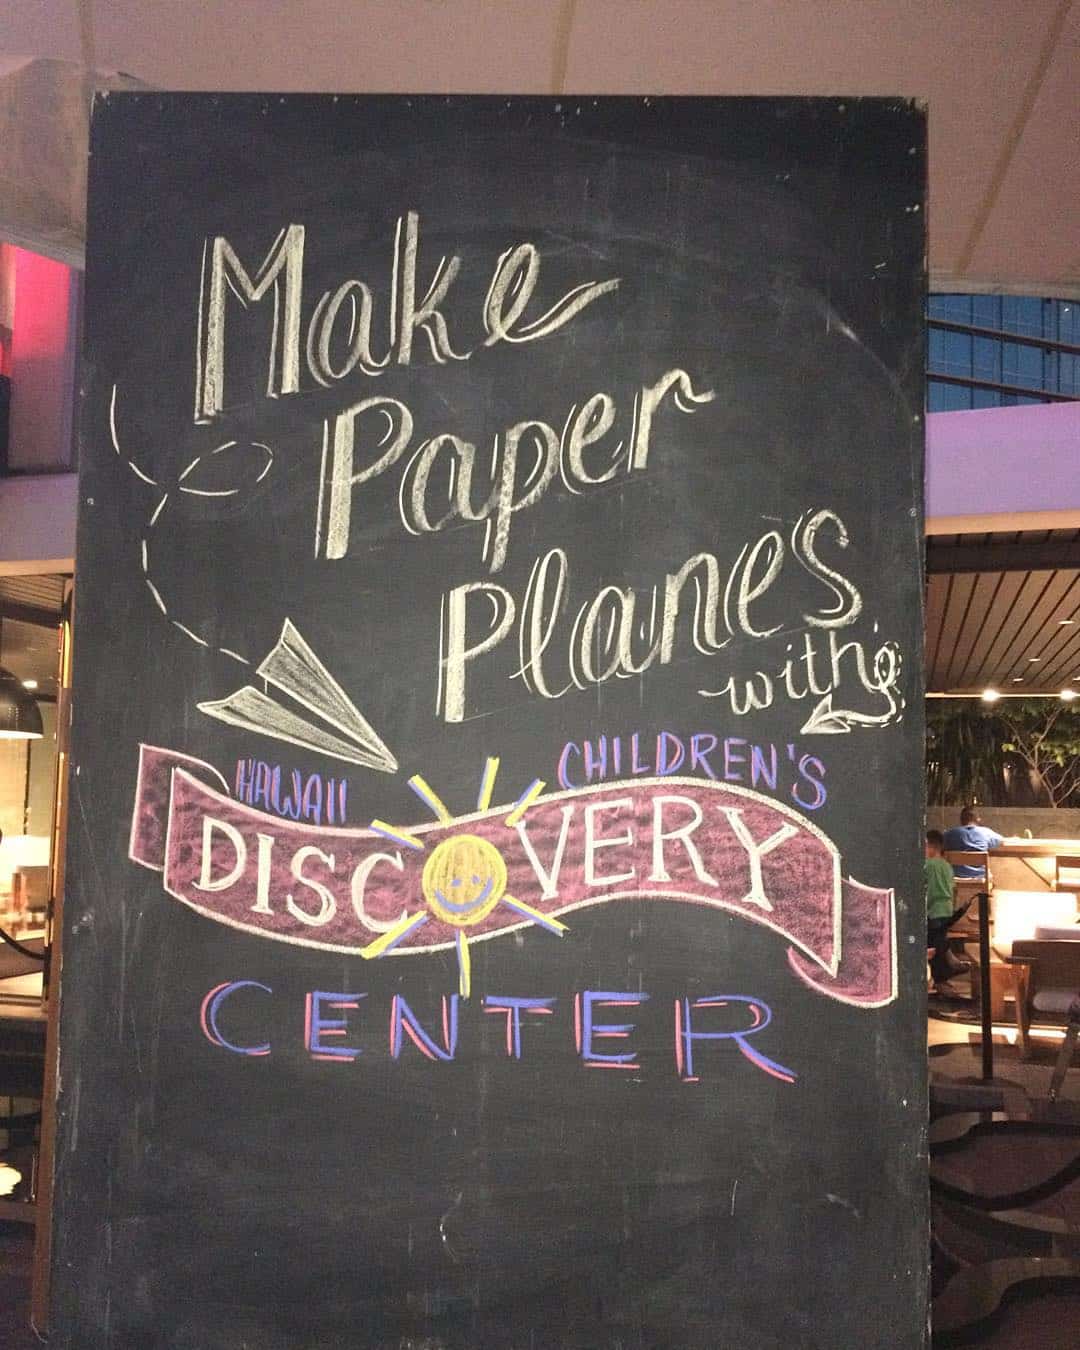 Make
Paper
Planes
with
HAWAII CHILDREN'S
DISCOVERY
CENTER